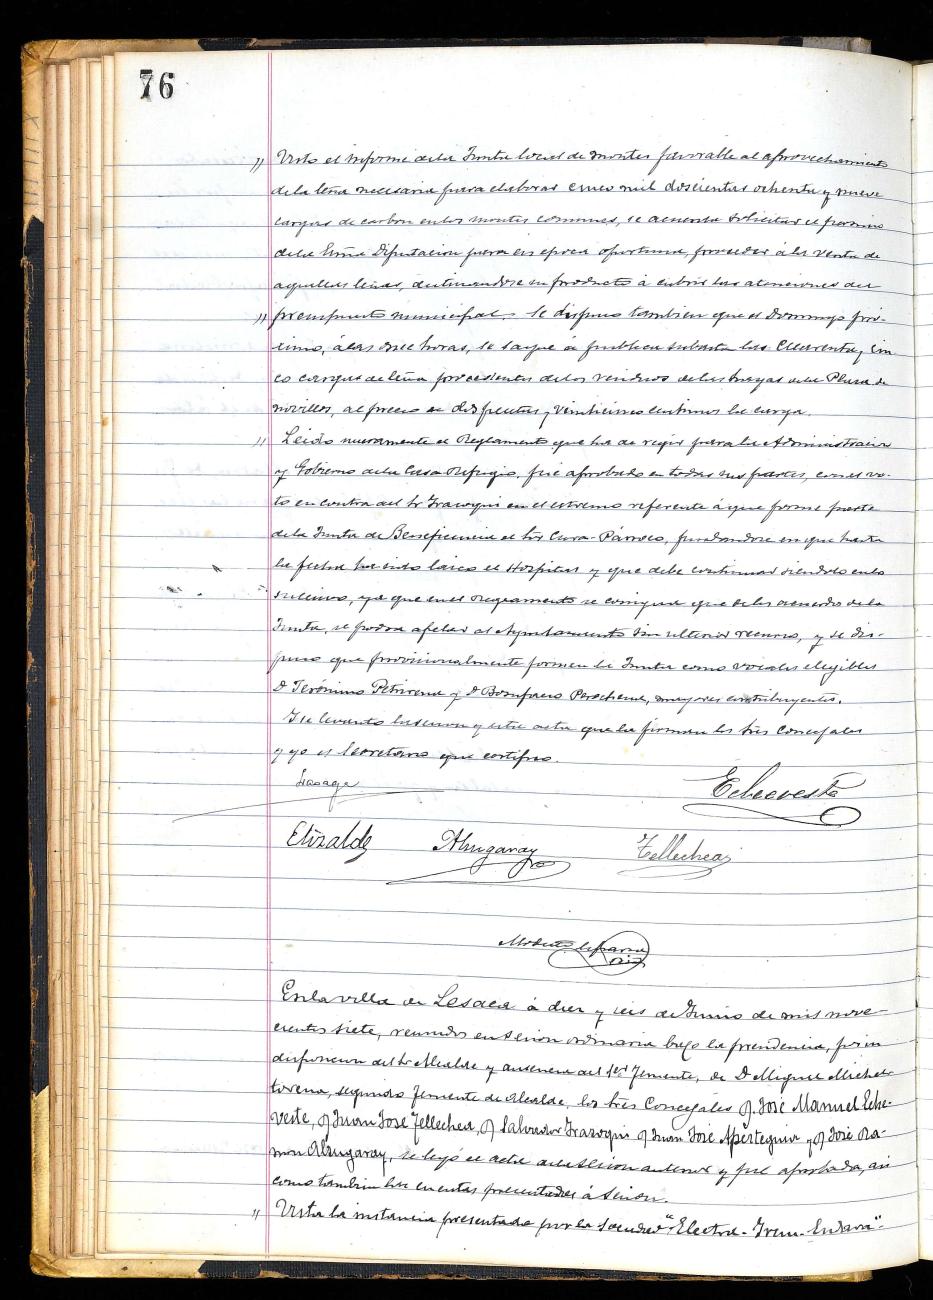 76
" Visto el informe de la Junta local de montes favorable al aprovechamiento
de la leña necesaria para elaborar cinco mil doscientas ochenta y nueve
cargas de carbón en los montes comunes, se acuerda solicitar el permiso
de la Excma Diputación para en época oportuna, proceder á la venta de
aquellas leñas, destinandose su producto á cubrir las atenciones del
" presupuesto municipal. Se dispuso tambien que el Domingo pró-
ximo, á las once horas, se saque á publica subasta las Cuarenta y cin
co cargas de leña procedentes de los de las hayas de la Plaza de
novillos, al precio de dos pesetas y veinticinco centimos la carga.
" Leido nuevamente el Reglamento que ha de regir para la Administracion
y Gobierno de la Casa Refugio, fué aprobado en todas sus partes, con el vo-
to en contra del Sr Irazoqui en el extremo referente á que forme parte
de la Junta de Beneficencia el Sor Cura-Párroco, fundandose en que hasta
la fecha ha sido laico el Hospital y que debe continuar siendolo en lo
sucesivo, y á que en el Reglamento se consigna que de los acuerdos de la
Junta, se podrá apelar al Ayuntamiento sin ulterior recurso, y se dis-
puso que provisionalmente formen la Junta como vocales elegibles
D Jerónimo Petrirena y D Bonifacio Perochena, mayores contribuyentes.
Y se levantó la sesion y esta acta que la firman los tres Concejales
y yo el Secretario que certifico.
Echeveste
Elizalde Alzugaray Tellechea
Modesto
En la villa de Lesaca á diez y seis de Junio de mil nove-
cientos siete, reunidos en sesion ordinaria bajo la presidencia, por in
disposicion del Sr Alcalde y ausencia del 1er Teniente, de D Miguel Michel
torena, segundo Teniente de Alcalde, los tres Concejales D. José Manuel Eche-
veste, D Juan José Tellechea, D Salvador Irazoqui D Juan José Apesteguia y D José Ra-
mon Alzugaray, se leyó el acta de la sesion anterior y fué aprobada, asi
como tambien las cuentas presentadas á sesion.
" Vista la instancia presentada por la Sociedad "Electra-Irun-Endara"